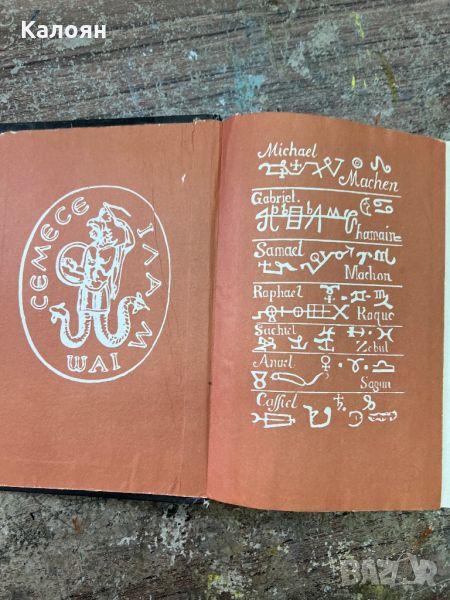 Калоян
CEMECE
ΙΛΑΜ
ΙΑШ
Michael
Machen
Gabriel.
Chamain
Samael
Machon
Raphael
Raque
Sachiel
Zebul
Anael
Sagun
Cassiel
BAZAR